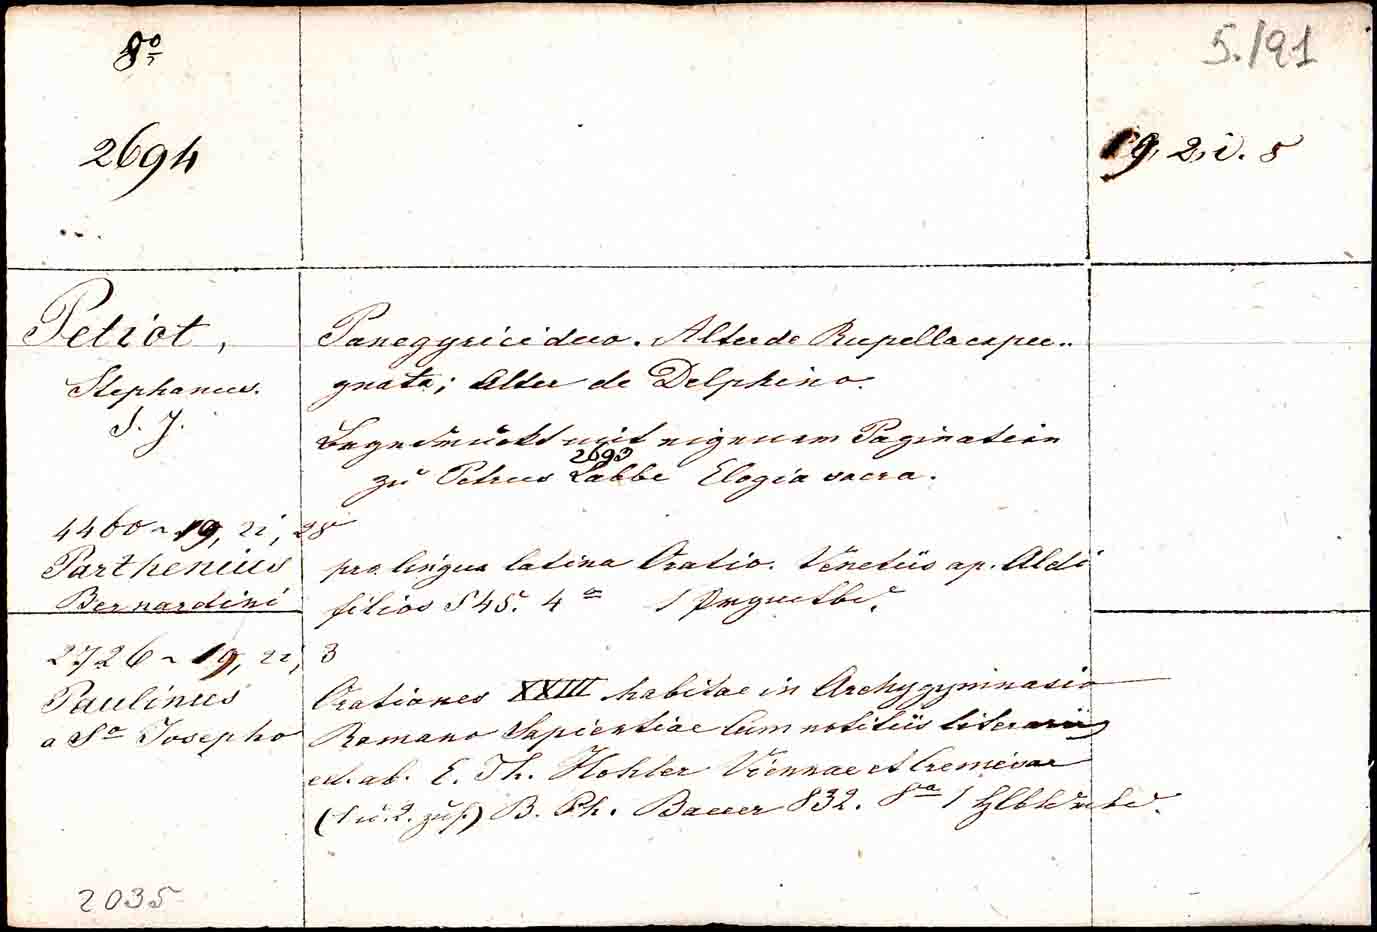 8º
5./91
2694
19, 2, i. 8
Petiot,
Stephanus.
S. J.
Panegyrici duo. Alter de Rupella expu-
gnata; alter de Delphino.
Beigedruckt mit eigenem Pagination
2693
zu Petrus Labbe Elogia sacra.
4460 ~ 19, 2i, 28
Parthenius
Bernardini
pro lingua latina Oratio. Venetiis ap. Aldi
filios 545. 4º 1
2726 ~ 19, 2i, 3
Paulinus
a Sº Josepho
Orationes XXIII habitae in Archygymnasio
Romano Sapientiae Cum notitiis literariis
ed. ab. E. Th. Hohler Viennae et Cremisae
(1 u. 2. zus.) B. Ph. Bauer 832. 8º 1
2035